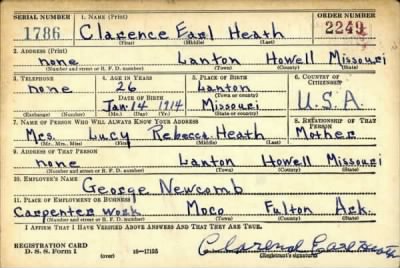 SERIAL NUMBER 1. NAME (Print) ORDER NUMBER
1786 Clarence Earl Heath 2249
(First) (Middle) (Last)
2. ADDRESS (Print)
none Lanton Howell Missouri
(Number and street or R. F. D. number) (Town) (County) (State)
3. TELEPHONE 4. AGE IN YEARS 5. PLACE OF BIRTH 6. COUNTRY OF CITIZENSHIP
none 26 Lanton
DATE OF BIRTH (Town or county)
Jan 14 1914 Missouri U.S.A.
(Exchange) (Number) (Mo.) (Day) (Yr.) (State or country)
7. NAME OF PERSON WHO WILL ALWAYS KNOW YOUR ADDRESS 8. RELATIONSHIP OF THAT PERSON
Mrs. Lucy Rebecca Heath Mother
(Mr., Mrs., Miss) (First) (Middle) (Last)
9. ADDRESS OF THAT PERSON
none Lanton Howell Missouri
(Number and street or R. F. D. number) (Town) (County) (State)
10. EMPLOYER'S NAME
George Newcomb
11. PLACE OF EMPLOYMENT OR BUSINESS
Carpenter Work Moco Fulton Ark.
(Number and street or R. F. D. number) (Town) (County) (State)
I AFFIRM THAT I HAVE VERIFIED ABOVE ANSWERS AND THAT THEY ARE TRUE.
REGISTRATION CARD
D. S. S. Form 1 16-17105 (Registrant's signature)